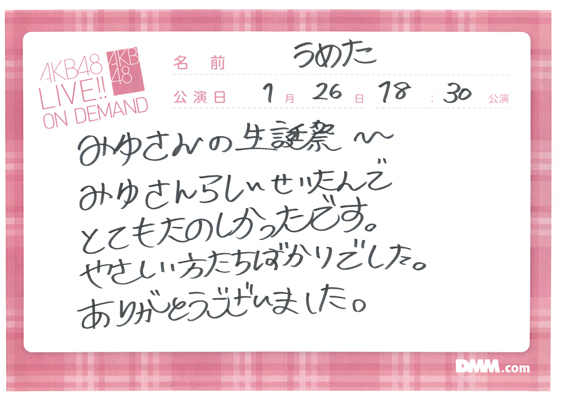 AKB48
LIVE!!
ON DEMAND
AKB
48
名前 うめた
公演日 1月26日 18:30 公演
みゆさんの生誕祭〜
みゆさんらしいせいたんで
とてもたのしかったです。
やさしい方たちばかりでした。
ありがとうございました。
DMM.com